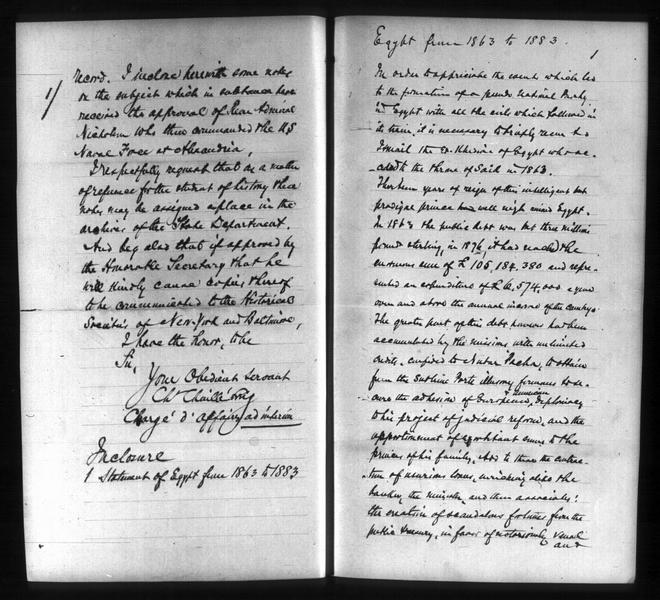 1/
record. I inclose herewith some notes
on the subject which in substance have
received the approval of Rear Admiral
Nicholson who then commanded the US
Naval Force at Alexandria,
I respectfully request that as a matter
of reference for the student of history these
notes may be assigned a place in the
archives of the State Department.
And beg also that if approved by
the Honorable Secretary that he
will kindly cause copies thereof
to be communicated to the Historical
Societies of New-York and Baltimore,
I have the honor, to be
Sir,
Your Obedient Servant
Ch Chaillé Long
Chargé d' affairs ad interim
Inclosure
1 Statement of Egypt from 1863 to 1883
Egypt from 1863 to 1883.
1
In order to appreciate the events which led
to the formation of a pseudo National Party
in Egypt with all the evils which followed in
its train, it is necessary to briefly recur to
Ismail the Ex-Khedive of Egypt who ac-
-ceded to the throne of Said in 1863.
Thirteen years of reign of this intelligent but
prodigal prince had well nigh ruined Egypt.
In 1863 the public debt was but three million
pounds sterling, in 1876, it had reached the
enormous sum of £ 105,184,380 and repre-
sented an expenditure of £ 6,574,000 a year
over and above the annual income of the country.
The greater part of this debt however had been
accumulated by the missions with unlimited
credits, confided to Nubar Pacha, to obtain
from the Sublime Porte illusory firmans to se-
cure the adhesion of European diplomacy
to his project of judicial reform, and the
apportionment of exorbitant sums to the
princes of his family. Add to these the contrac-
tion of usurious loans, enriching alike the
banker, the minister, and their associates:
the creation of scandalous fortunes from the
public treasury, in favor of notoriously venal
and